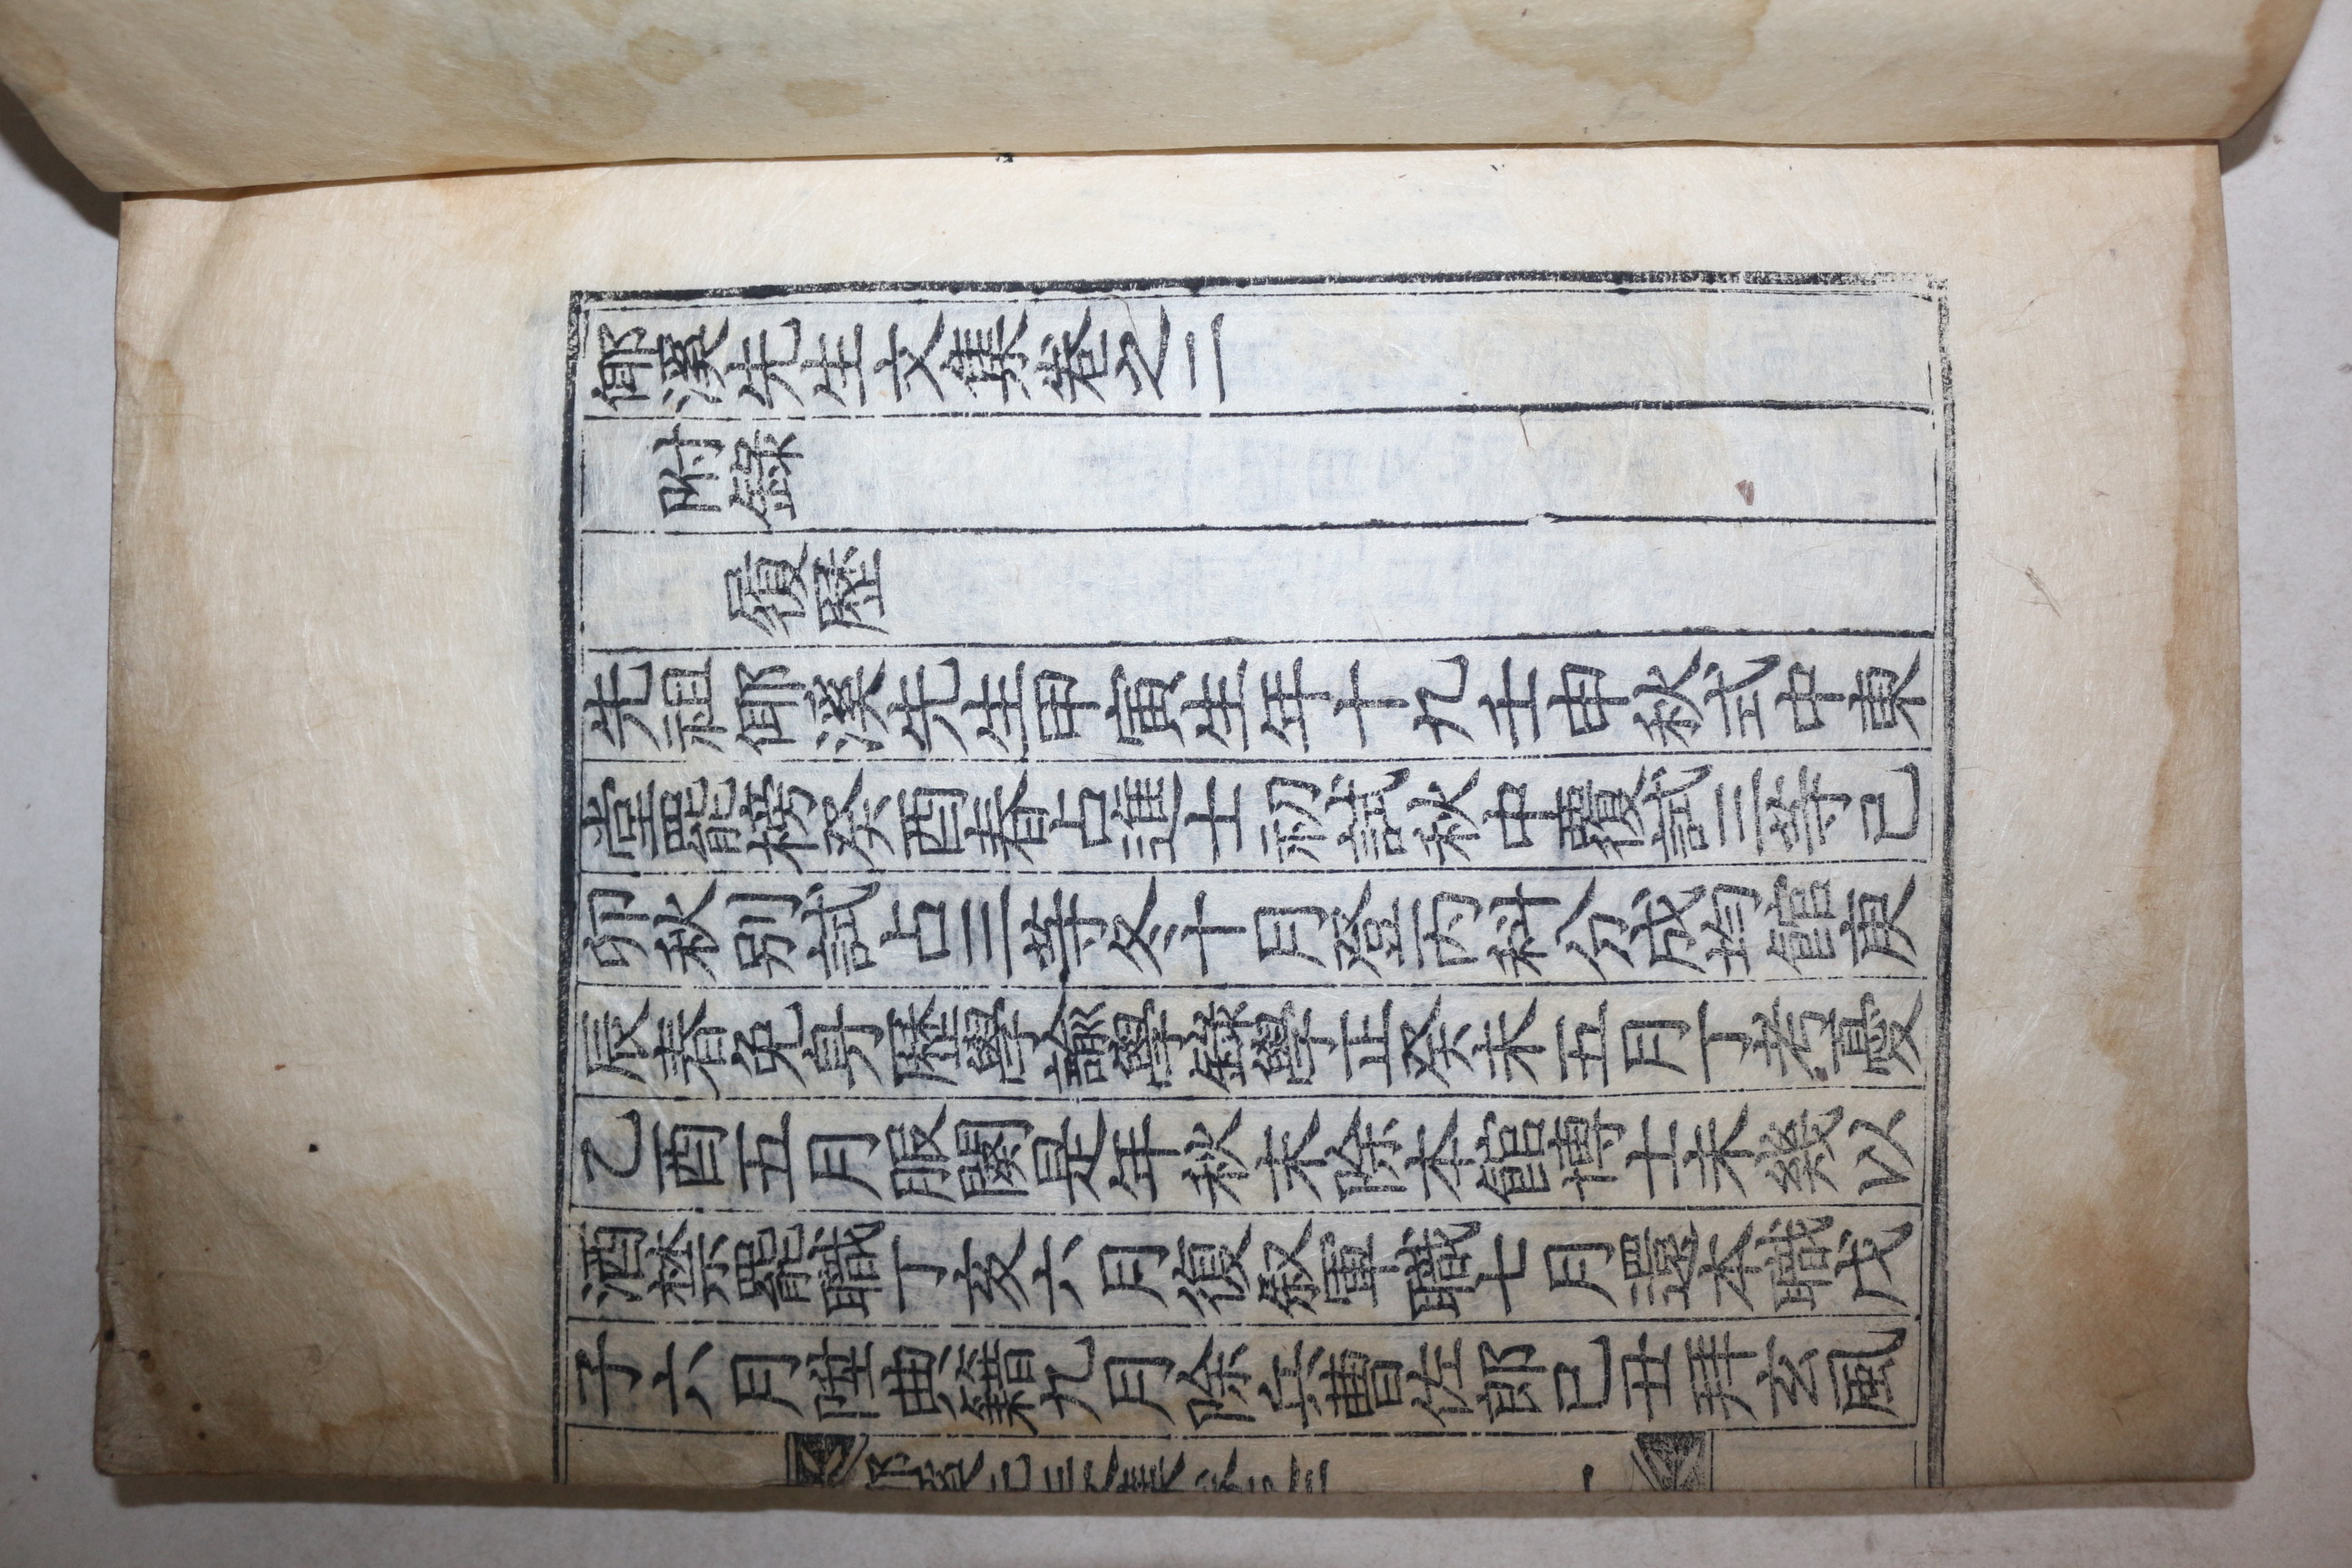 郁溪先生文集卷之二
附錄
履歷
先祖郁溪先生甲寅生年十九壬申秋式中東
堂罷榜癸酉春占進士初試秋中覆試三等己
卯秋別試占三等冬十月登丙科分成均館庚
辰春免身歷學諭學錄學正癸未五月丁老憂
乙酉五月服闋是年秋末除本館博士未幾以
酒禁罷職丁亥六月復敘軍職七月還本職戊
子六月陞典籍九月除曹佐郎己丑拜玄風